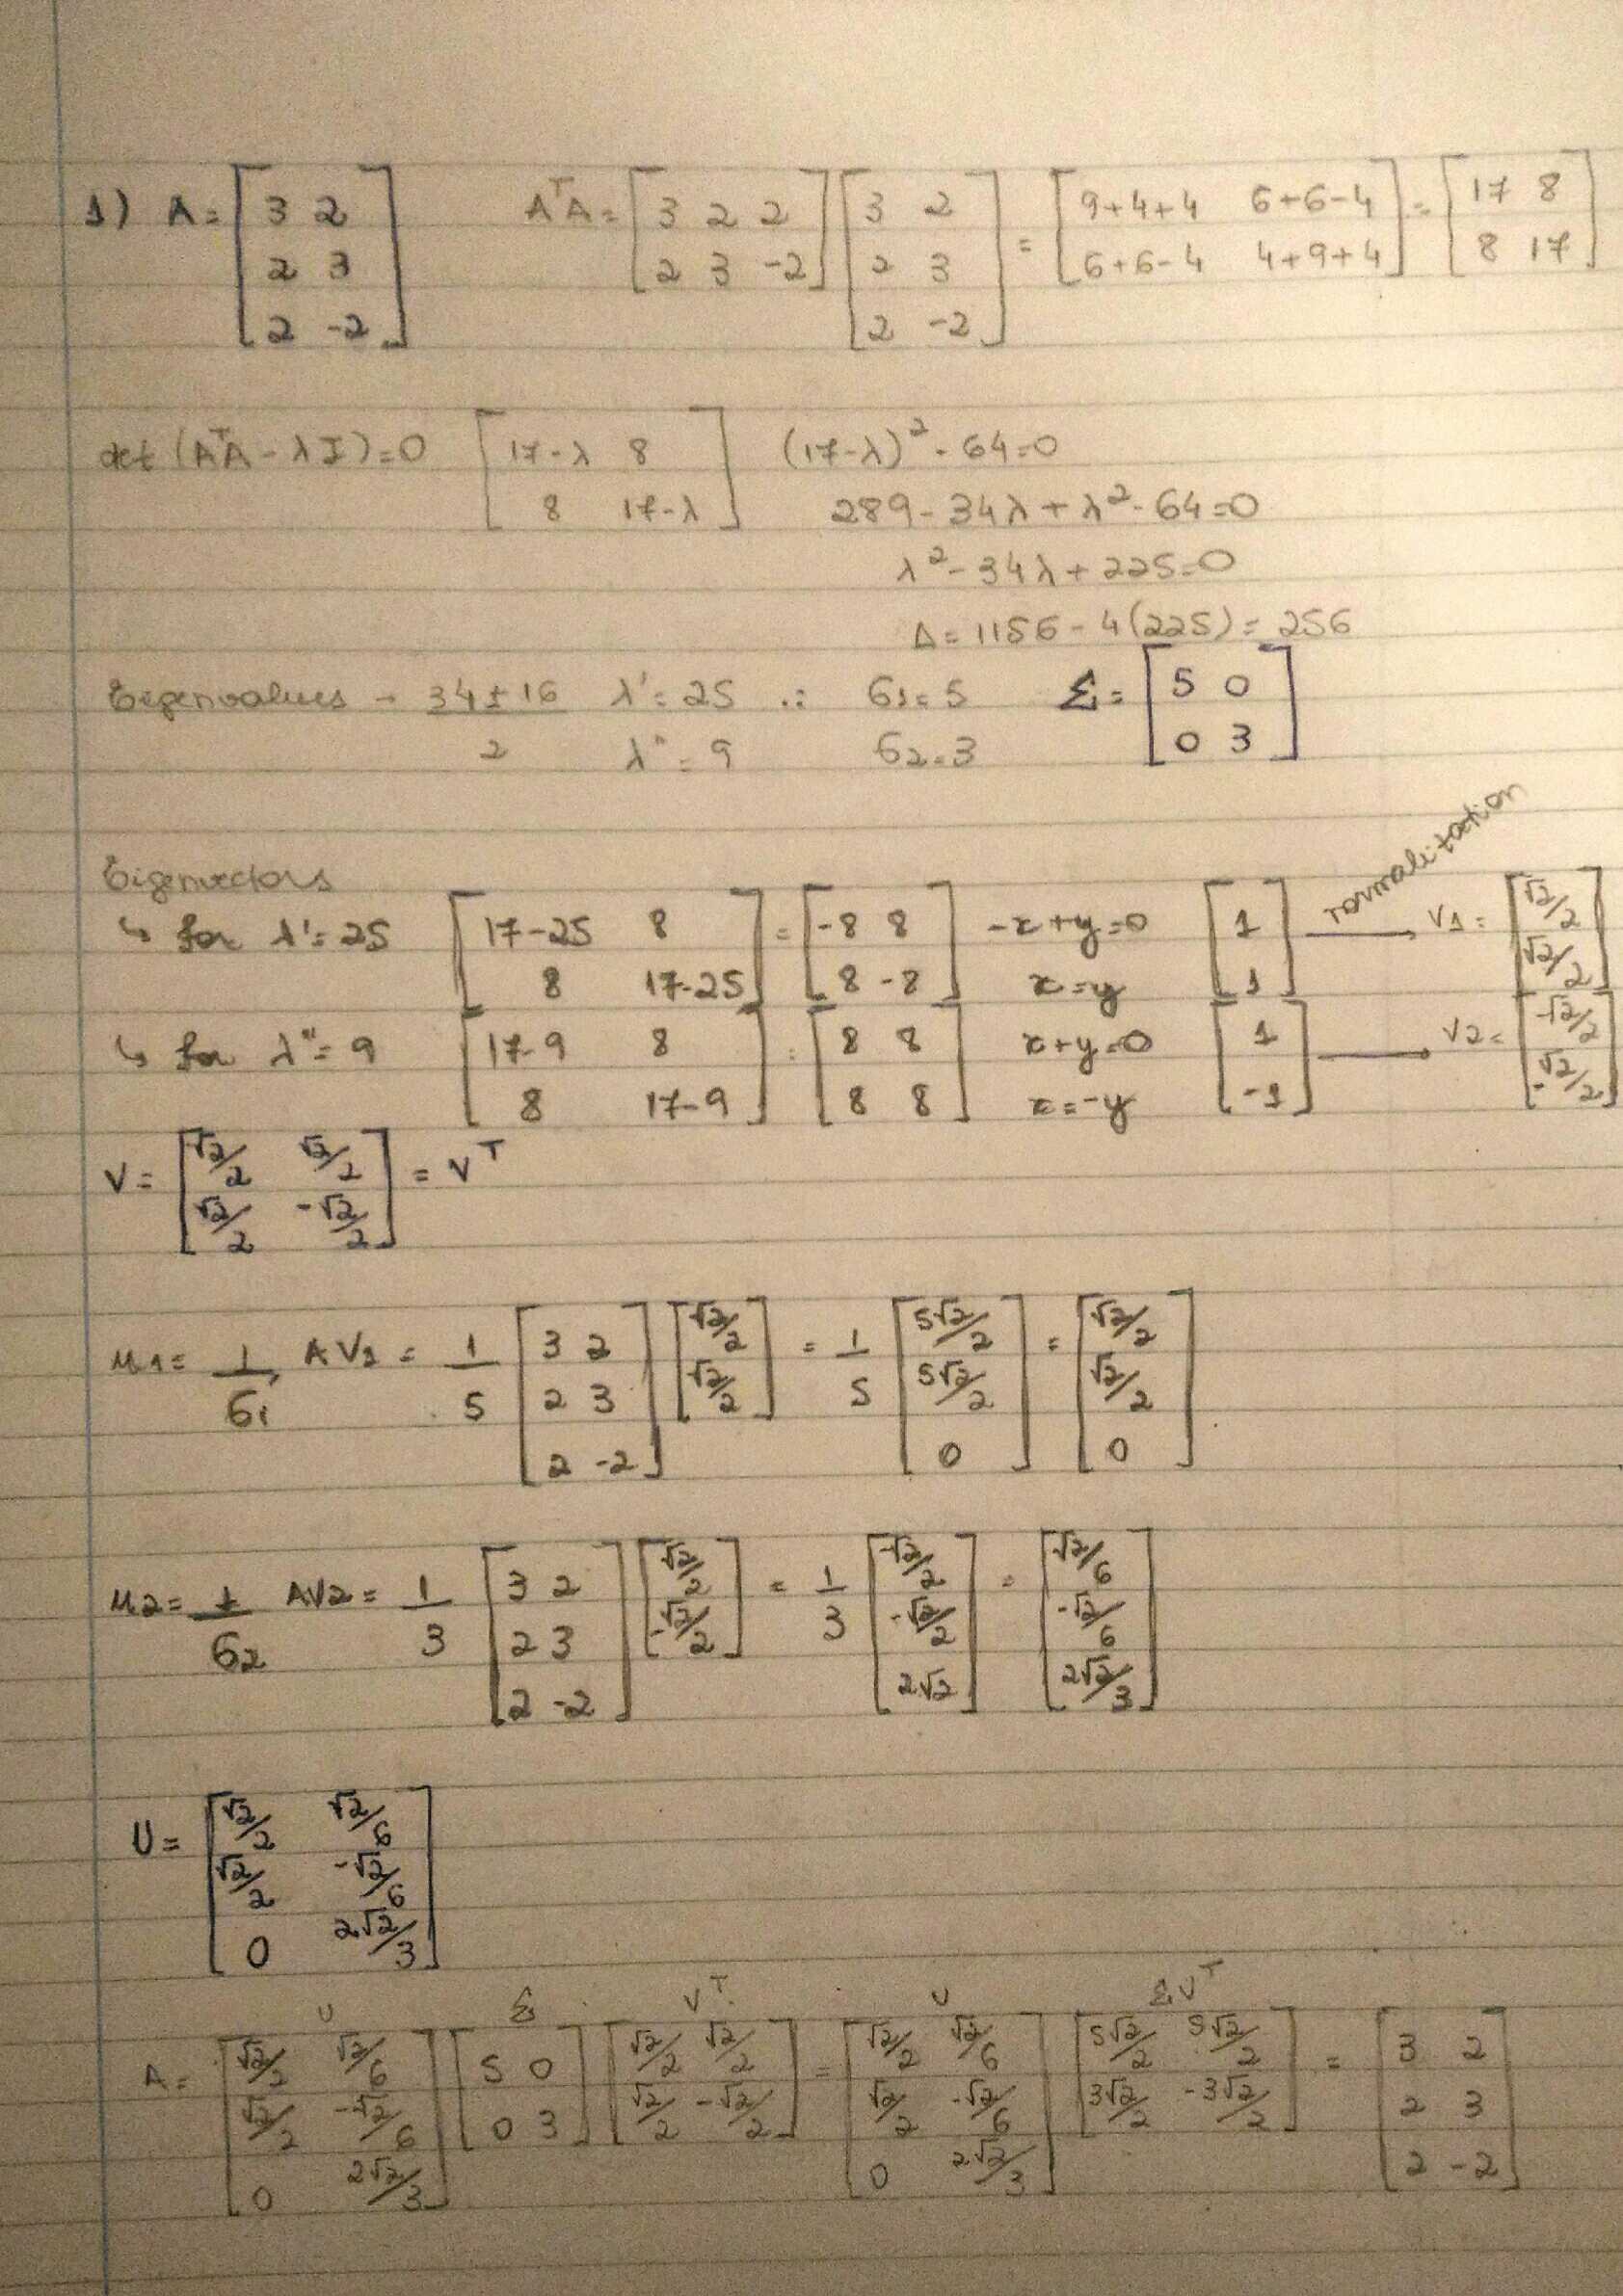 1) A = [3 2; 2 3; 2 -2] AᵀA = [3 2 2; 2 3 -2] [3 2; 2 3; 2 -2] = [9+4+4 6+6-4; 6+6-4 4+9+4] = [17 8; 8 17]
det (AᵀA - λI) = 0 [17-λ 8; 8 17-λ] (17-λ)² - 64 = 0
289 - 34λ + λ² - 64 = 0
λ² - 34λ + 225 = 0
Δ = 1156 - 4(225) = 256
Eigenvalues - (34 ± 16)/2 λ' = 25 ∴ σ1 = 5 Σ = [5 0; 0 3]
λ'' = 9 σ2 = 3
Eigenvectors
↳ for λ' = 25 [17-25 8; 8 17-25] = [-8 8; 8 -8] -x+y=0 x=y [1; 1] normalitation → V1 = [√2/2; √2/2]
↳ for λ'' = 9 [17-9 8; 8 17-9] = [8 8; 8 8] x+y=0 x=-y [1; -1] → V2 = [√2/2; -√2/2]
V = [√2/2 √2/2; √2/2 -√2/2] = Vᵀ
u1 = 1/σ1 AV1 = 1/5 [3 2; 2 3; 2 -2] [√2/2; √2/2] = 1/5 [5√2/2; 5√2/2; 0] = [√2/2; √2/2; 0]
u2 = 1/σ2 AV2 = 1/3 [3 2; 2 3; 2 -2] [√2/2; -√2/2] = 1/3 [√2/2; -√2/2; 2√2] = [√2/6; -√2/6; 2√2/3]
U = [√2/2 √2/6; √2/2 -√2/6; 0 2√2/3]
U Σ Vᵀ U ΣVᵀ
A = [√2/2 √2/6; √2/2 -√2/6; 0 2√2/3] [5 0; 0 3] [√2/2 √2/2; √2/2 -√2/2] = [√2/2 √2/6; √2/2 -√2/6; 0 2√2/3] [5√2/2 5√2/2; 3√2/2 -3√2/2] = [3 2; 2 3; 2 -2]